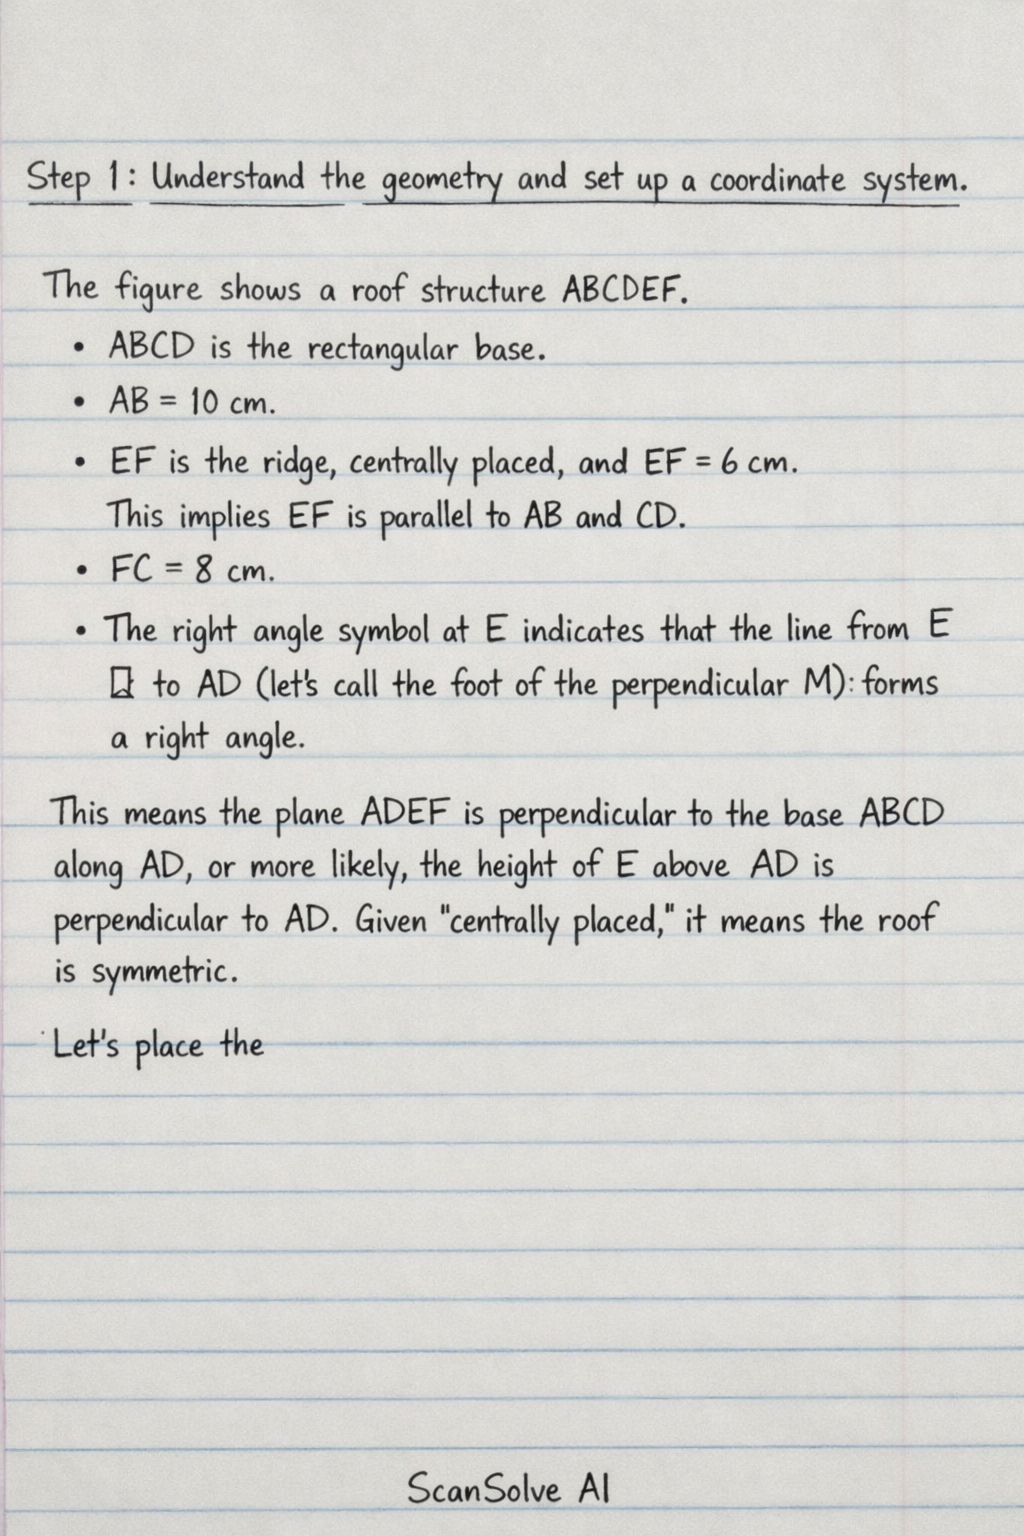 Step 1: Understand the geometry and set up a coordinate system.
The figure shows a roof structure ABCDEF.
• ABCD is the rectangular base.
• AB = 10 cm.
• EF is the ridge, centrally placed, and EF = 6 cm.
This implies EF is parallel to AB and CD.
• FC = 8 cm.
• The right angle symbol at E indicates that the line from E
to AD (let's call the foot of the perpendicular M): forms
a right angle.
This means the plane ADEF is perpendicular to the base ABCD
along AD, or more likely, the height of E above AD is
perpendicular to AD. Given "centrally placed," it means the roof
is symmetric.
Let's place the
ScanSolve AI